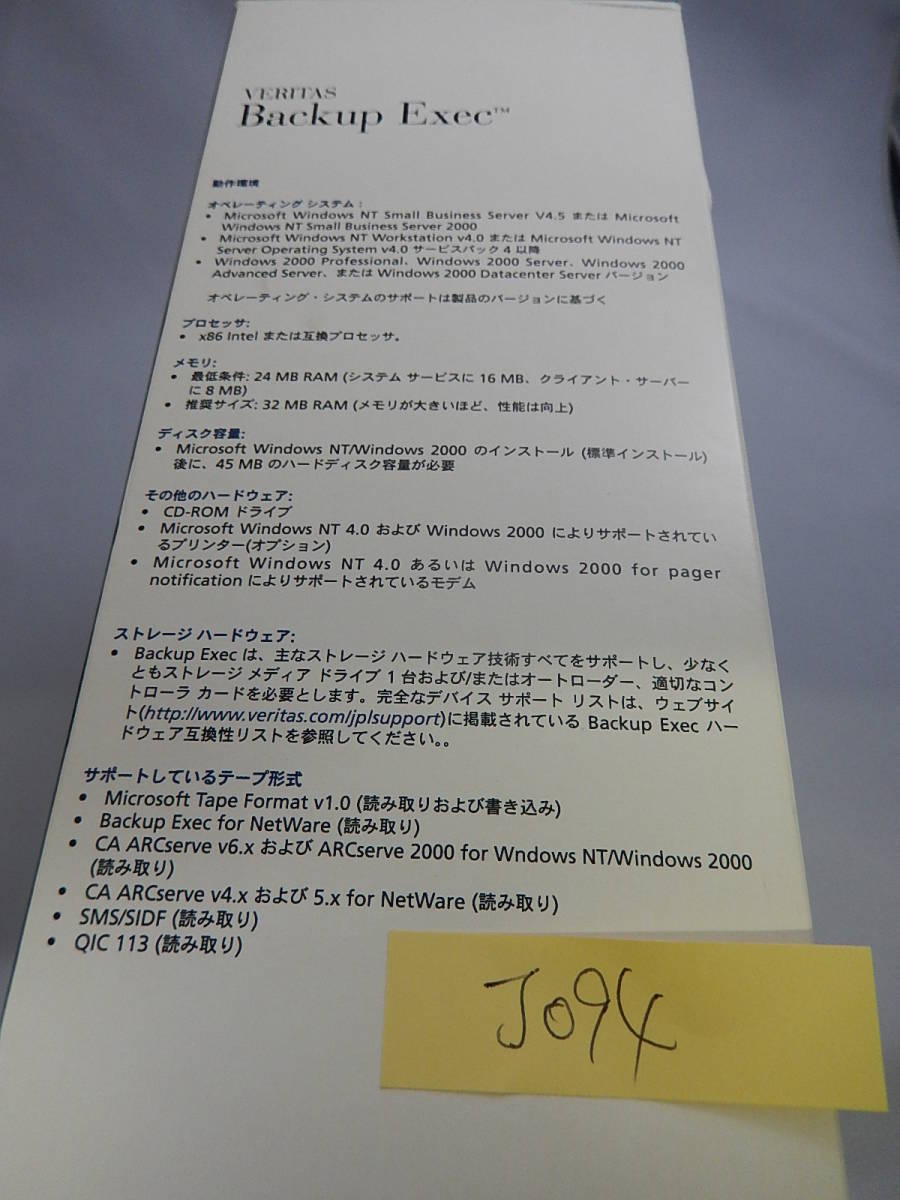 VERITAS
Backup Exec™
動作環境
オペレーティング システム：
• Microsoft Windows NT Small Business Server V4.5 または Microsoft
Windows NT Small Business Server 2000
• Microsoft Windows NT Workstation v4.0 または Microsoft Windows NT
Server Operating System v4.0 サービスパック 4 以降
• Windows 2000 Professional、Windows 2000 Server、Windows 2000
Advanced Server、または Windows 2000 Datacenter Server バージョン
オペレーティング・システムのサポートは製品のバージョンに基づく
プロセッサ:
• x86 Intel または互換プロセッサ。
メモリ:
• 最低条件: 24 MB RAM (システム サービスに 16 MB、クライアント・サーバー
に 8 MB)
• 推奨サイズ: 32 MB RAM (メモリが大きいほど、性能は向上)
ディスク容量:
• Microsoft Windows NT/Windows 2000 のインストール (標準インストール)
後に、45 MB のハードディスク容量が必要
その他のハードウェア:
• CD-ROM ドライブ
• Microsoft Windows NT 4.0 および Windows 2000 によりサポートされてい
るプリンター(オプション)
• Microsoft Windows NT 4.0 あるいは Windows 2000 for pager
notification によりサポートされているモデム
ストレージ ハードウェア:
• Backup Exec は、主なストレージ ハードウェア技術すべてをサポートし、少なく
ともストレージ メディア ドライブ 1 台および/またはオートローダー、適切なコン
トローラ カードを必要とします。完全なデバイス サポート リストは、ウェブサイ
ト(http://www.veritas.com/jplsupport)に掲載されている Backup Exec ハー
ドウェア互換性リストを参照してください。。
サポートしているテープ形式
• Microsoft Tape Format v1.0 (読み取りおよび書き込み)
• Backup Exec for NetWare (読み取り)
• CA ARCserve v6.x および ARCserve 2000 for Wndows NT/Windows 2000
(読み取り)
• CA ARCserve v4.x および 5.x for NetWare (読み取り)
• SMS/SIDF (読み取り)
• QIC 113 (読み取り)
J094